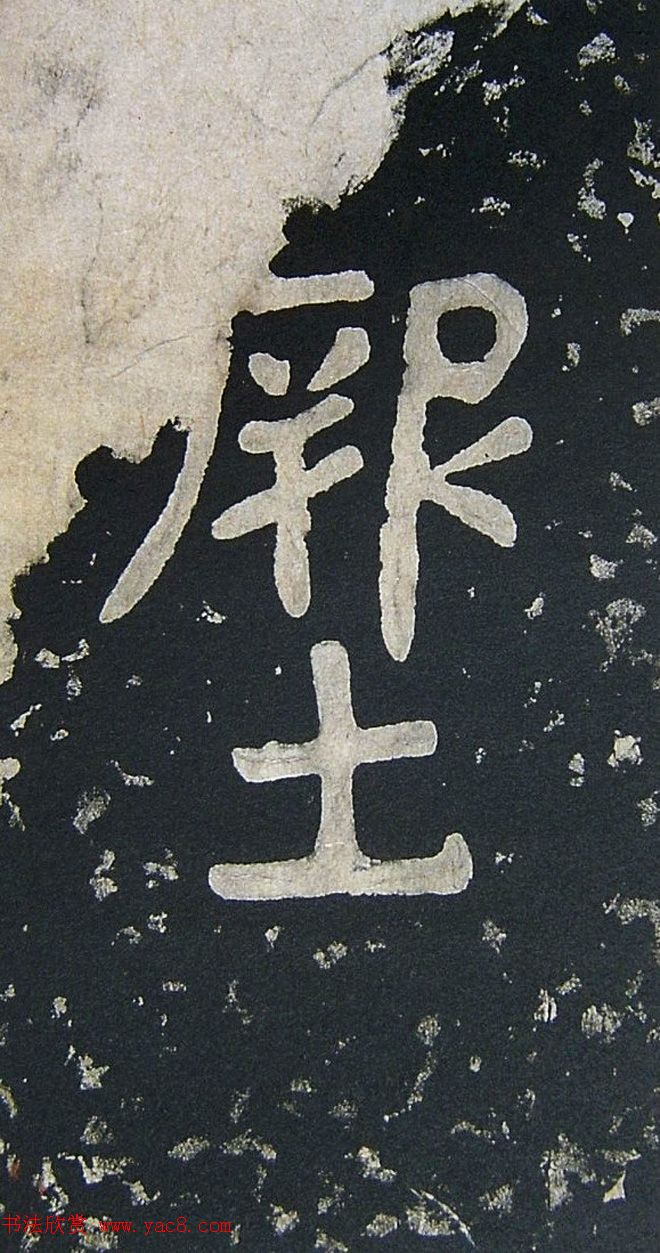 厥
土
书法欣赏 www.yac8.com